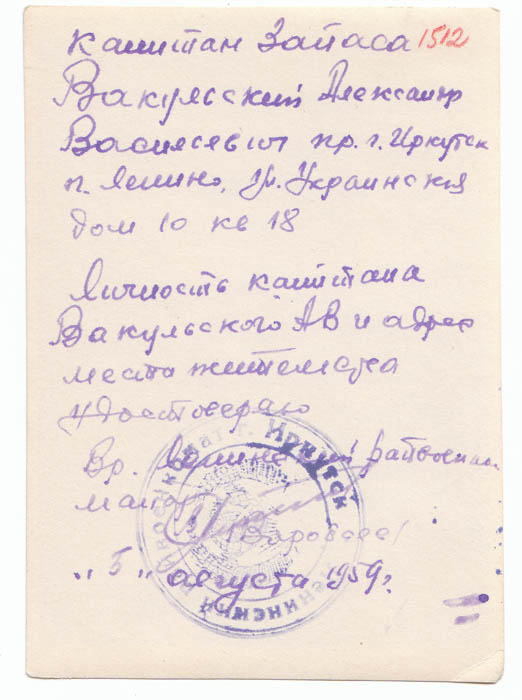 капитан запаса 1512
Вакульский Александр
Васильевич пр. г. Иркутск
п. Ленино, ул. Украинская
дом 10 кв 18
Личность капитана
Вакульского АВ и адрес
места жительства
удостоверяю
Вр. Ленинский райвоенком
майор
"5" августа 1959 г.
г. Иркутск
Ленинский